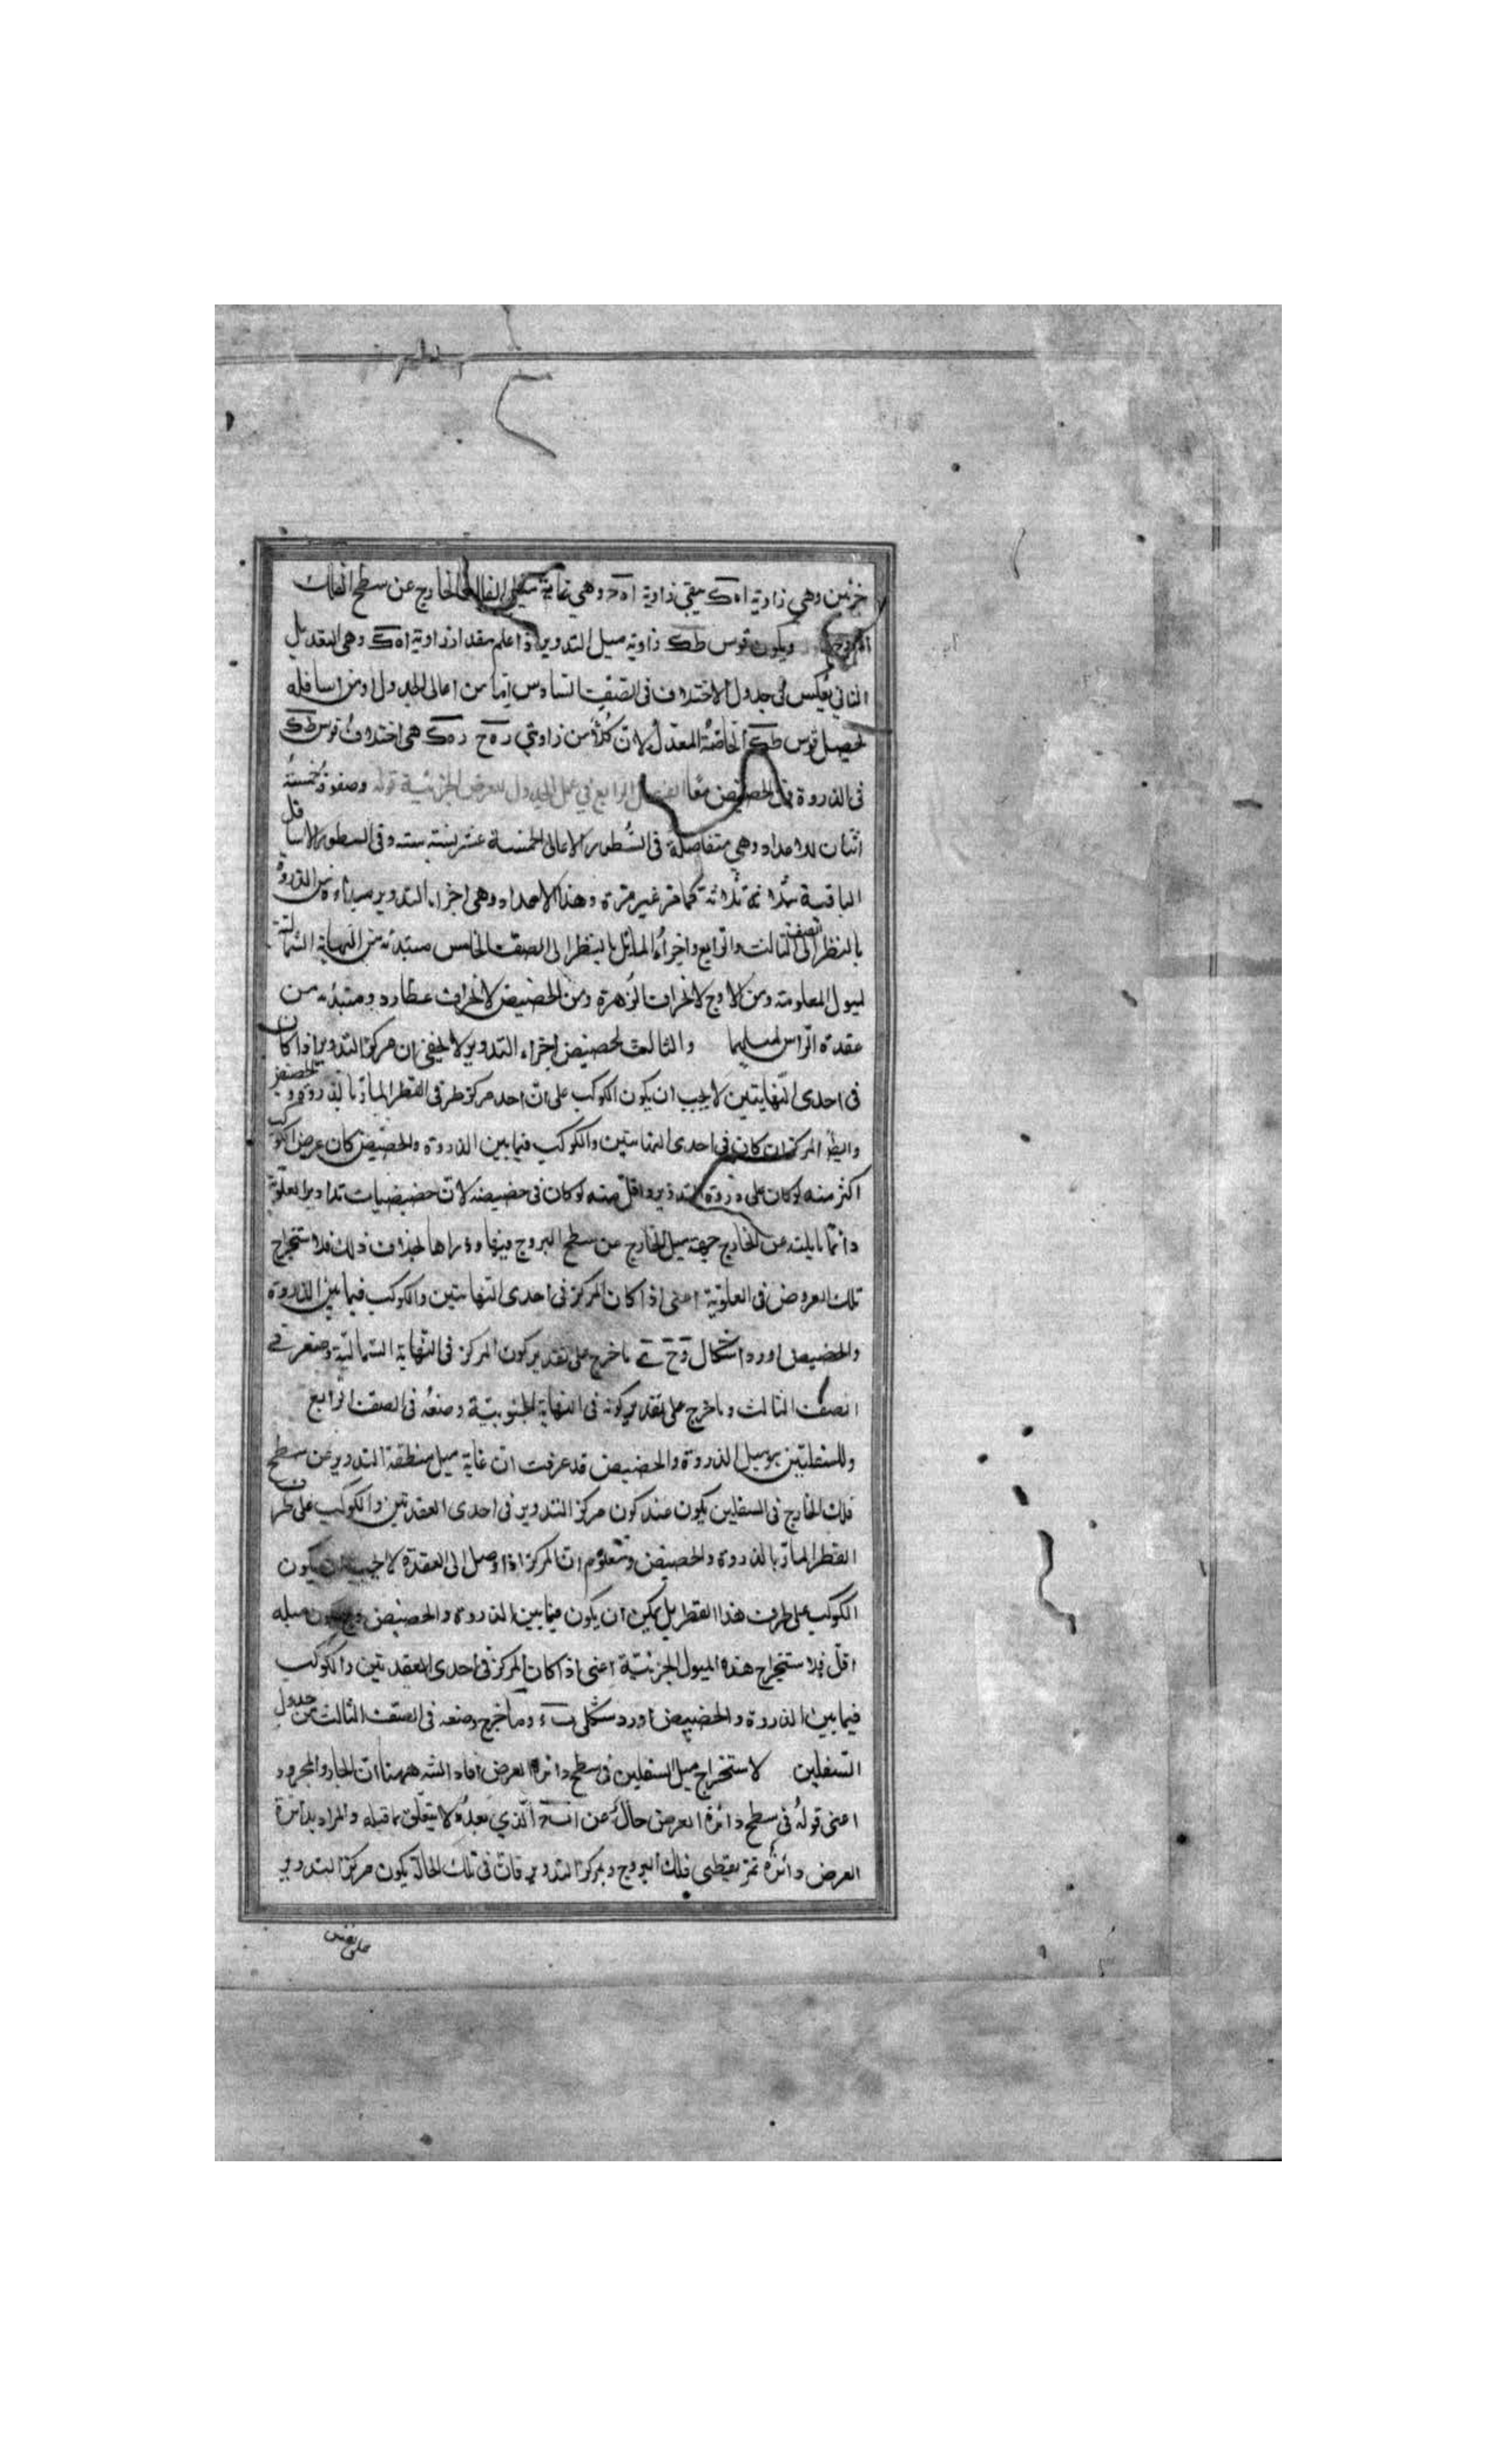 جزئين وهي زاوية اهك يبقى زاوية اهح وهي غاية ميل الخارج عن سطح الفلك
ويكون قوس طك زاوية ميل التدوير اذا علم مقدار زاوية اهك وهي التعديل
الثاني يعكس في جدول الاختلاف في الصف السادس اما من اعالي الجدول او من اسافله
لحصيل قوس طك الخاصة المعدلة لان كلا من زاويتي رهح رهك هي اختلاف قوس طك
في الذروة في الحضيض معا الفصل الرابع في عمل الجدول للعرض الجزئية قوله وصفوة خمسة
اثنان للاعداد وهي متفاصلة في السطور الاعالي الخمسة عشر بستة ستة وفي السطور الاسافل
الباقية بثلاثة ثلاثة كما مر غير مرة وهذا الاعداد وهي اجزاء التدوير مبتداءة من الذروة
بالنظر الى نصف الثالث والرابع واجزاء المائل بالنظر الى الصف الخامس مبتدئة من النهاية الشمالية
لميول المعلومة ومن الاوج لانحراف الزهرة ومن الحضيض لانحراف عطارد ومبتدئه من
عقدة الراس لميليهما والثالث لحضيض اجزاء التدوير لا يخفى ان مركز التدوير اذا كان
في احدى النهايتين لا يجب ان يكون الكوكب على ان احد مركز طرفي القطر المار بالذروة والحضيض
وايضا المركز ان كان في احدى النهايتين والكوكب فيما بين الذروة والحضيض كان عرض الكوكب
اكثر منه لو كان على ذروة التدوير واقل منه لو كان في حضيضه لان حضيضيات تداوير العلوية
دائما مايلة عن الخارج جهة ميل الخارج عن سطح البروج فيها وذراها بخلاف ذلك فلاستخراج
تلك العروض في العلوية اعني اذا كان المركز في احدى النهايتين والكوكب فيما بين الذروة
والحضيض اورد اشكال ما خرج على تقدير كون المركز في النهاية الشمالية وضعه في
الصف الثالث وما خرج على تقدير كونه في النهاية الجنوبية وضعه في الصف الرابع
وللسفليتين برميل الذروة والحضيض قد عرفت ان غاية ميل منطقة التدوير عن سطح
فلك الخارج في السفليين يكون عند كون مركز التدوير في احدى العقدتين والكوكب على طرف
القطر المار بالذروة والحضيض ومعلوم ان المركز اذا وصل الى العقدة لا يجب ان يكون
الكوكب على طرف هذا القطر بل يمكن ان يكون فيما بين الذروة والحضيض ميله
اقل فلاستخراج هذه الميول الجزئية اعني اذا كان المركز في احدى العقدتين والكوكب
فيما بين الذروة والحضيض اورد شكلي وما خرج وضعه في الصف الثالث من جدول
السفليين لاستخراج ميل السفليين في سطح دائرة العرض افاد الشه ههنا ان الجار والمجرور
اعني قوله في سطح دائرة العرض حال عن الذي بعده لا يتعلق بما قبله والمراد بدائرة
العرض دائرة تمر بقطبي فلك البروج وبمركز التدوير فان في تلك الحالة يكون مركز التدوير
على نفس